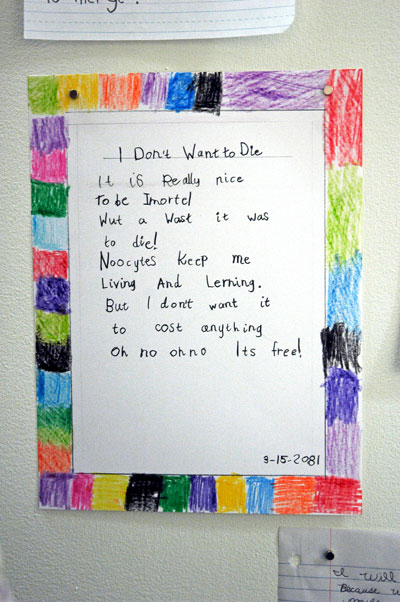 to merge!
I Don't Want to Die
It is Really nice
To be Imortel
Wut a Wast it was
to die!
Noocytes Keep me
Living And Lerning.
But I don't want it
to cost anything
Oh no oh no Its free!
3-15-2081
I will
Because w